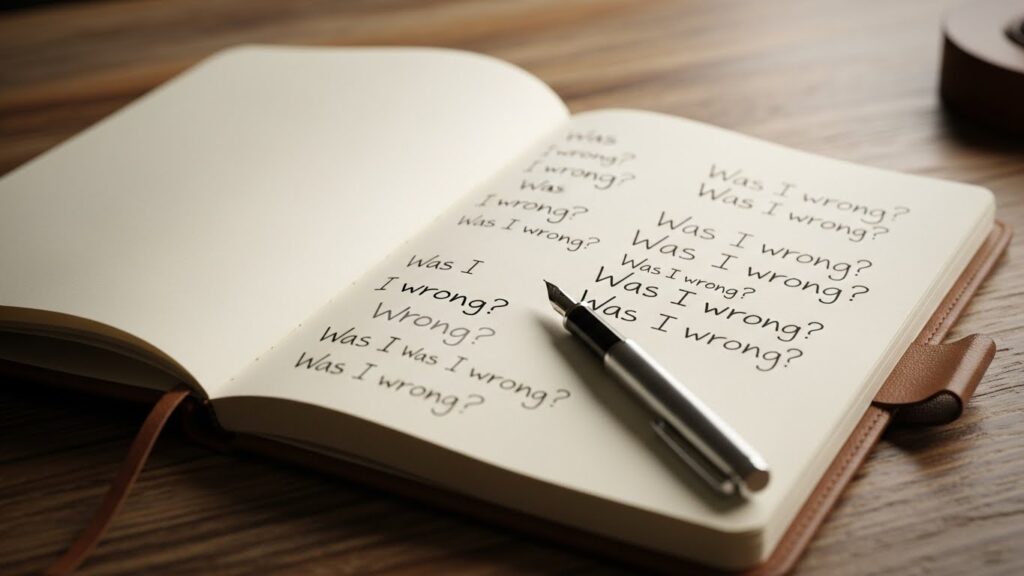 Was
I wrong?
I wrong?
Was
I wrong?
Was I wrong?
Was I
I wrong?
Wrong?
Was I Was I wrong?
Was I wrong?
Was I wrong?
Was I wrong?
Was I wrong?
Was I wrong?
Was I wrong?
Was I wrong?
Was I wrong?